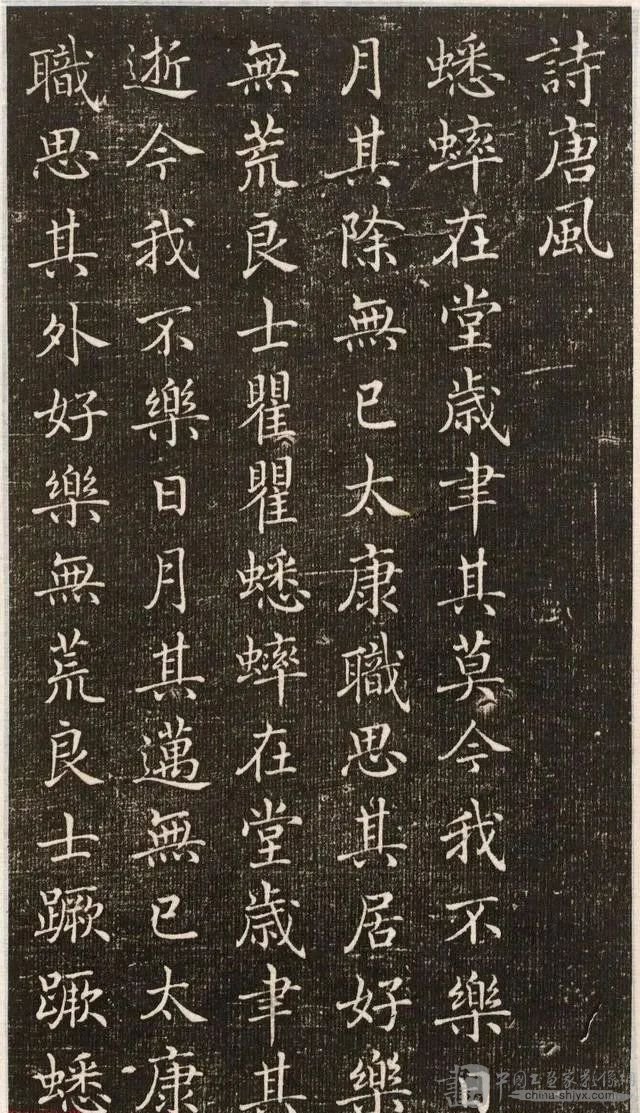 詩唐風
蟋蟀在堂歳聿其莫今我不樂
月其除無已太康職思其居好樂
無荒良士瞿瞿蟋蟀在堂歳聿其
逝今我不樂日月其邁無已太康
職思其外好樂無荒良士蹶蹶蟋
china-shjyx.com